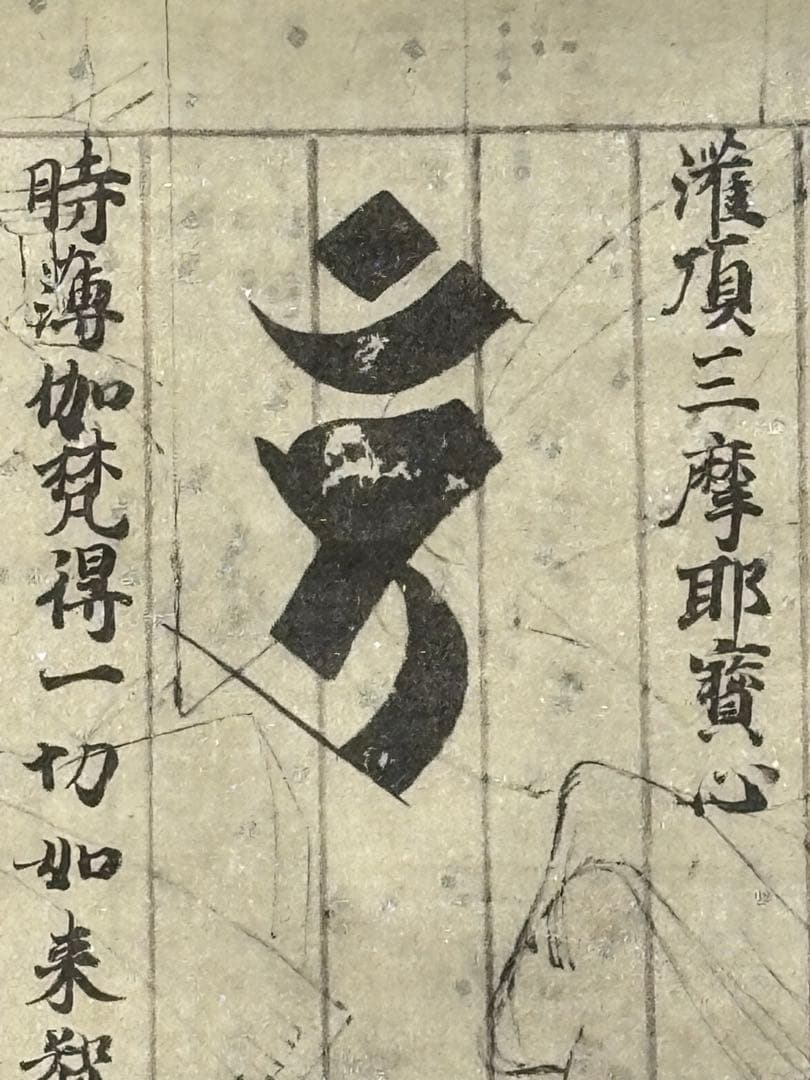 灌頂三摩耶寶心
𑖝𑖿𑖨𑖼
時薄伽梵得一切如来智